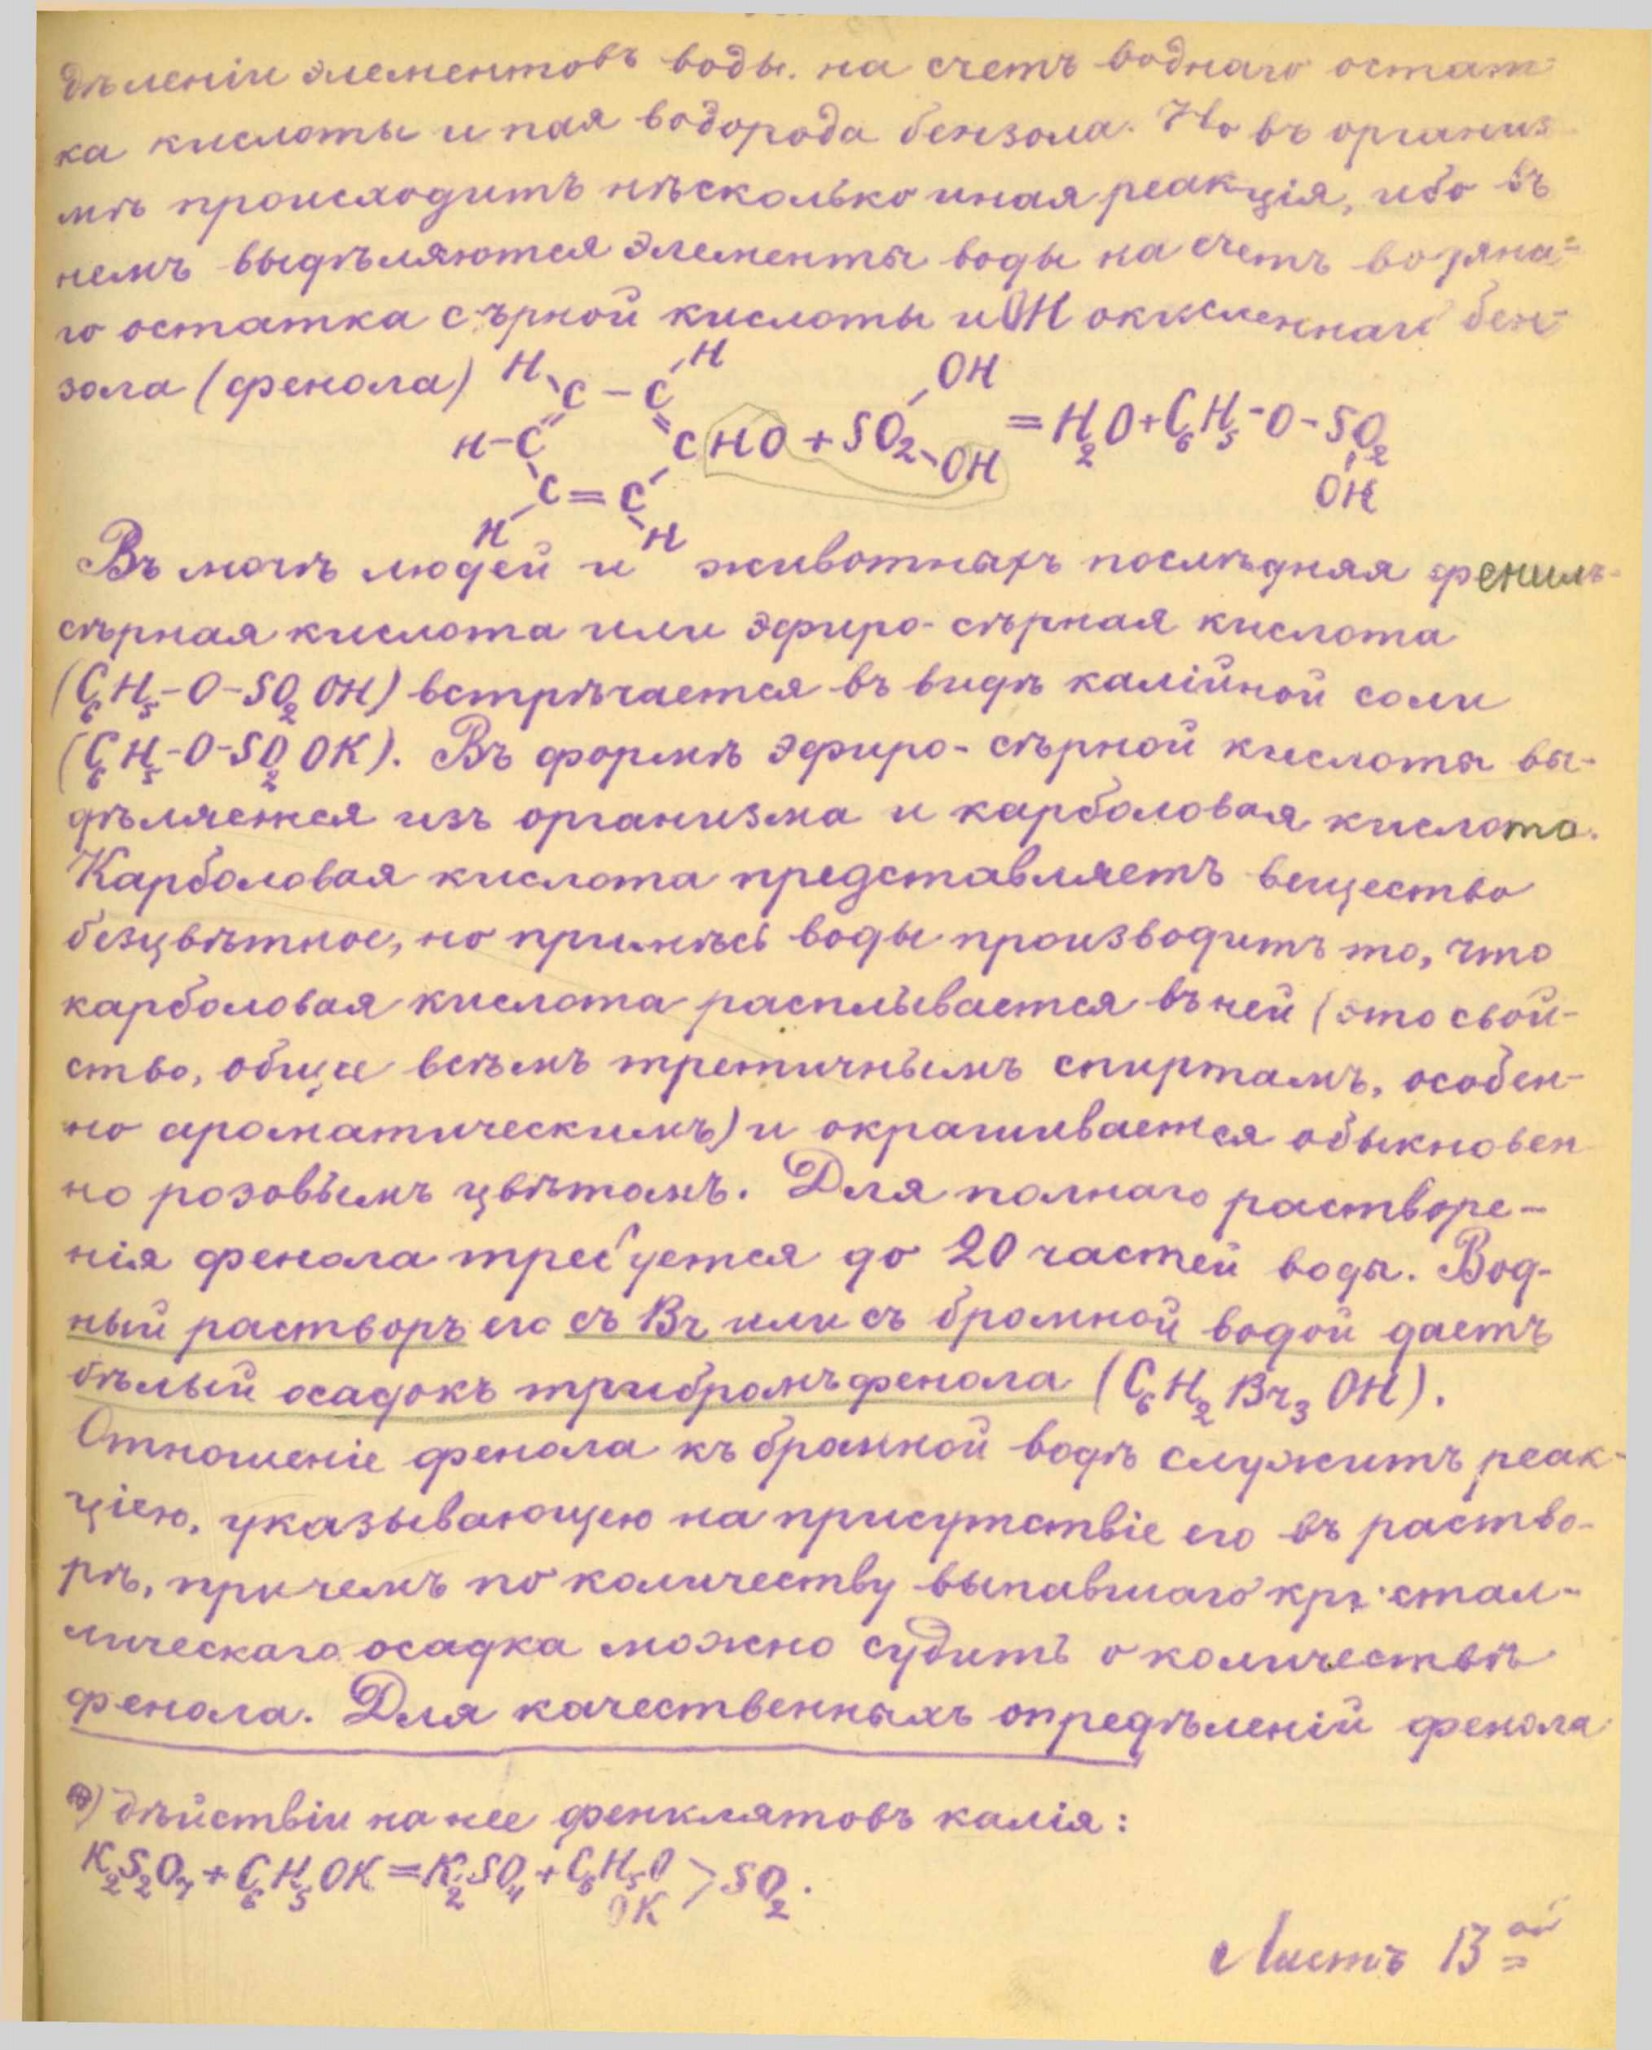 дѣленіи элементовъ воды на счетъ воднаго остат-
ка кислоты и пая водорода бензола. Но въ организ-
мѣ происходитъ нѣсколько иная реакція, ибо въ
немъ выдѣляются элементы воды на счетъ водяна-
го остатка сѣрной кислоты и ОН окисленнаго бен-
зола (фенола)
H H OH
C – C
H–C CHO + SO2 = H2O + C6H5–O–SO2
C = C OH OH
H H
Въ мочѣ людей и животныхъ послѣдняя фенилъ-
сѣрная кислота или эфиро-сѣрная кислота
(C6H5–O–SO2OH) встрѣчается въ видѣ калійной соли
(C6H5–O–SO2OK). Въ формѣ эфиро-сѣрной кислоты вы-
дѣляется изъ организма и карболовая кислота.
Карболовая кислота представляетъ вещество
безцвѣтное, но примѣсь воды производитъ то, что
карболовая кислота расплывается въ ней (это свой-
ство, общее всѣмъ третичнымъ спиртамъ, особен-
но ароматическимъ) и окрашивается обыкновен
но розовымъ цвѣтомъ. Для полнаго растворе-
нія фенола требуется до 20 частей воды. Вод-
ный растворъ его съ Br или съ бромной водой даетъ
бѣлый осадокъ трибромъфенола (C6H2Br3OH).
Отношеніе фенола къ бромной водѣ служитъ реак-
ціею, указывающею на присутствіе его въ раство-
рѣ, причемъ по количеству выпавшаго кристал-
лическаго осадка можно судить о количествѣ
фенола. Для качественныхъ опредѣленій фенола
*) дѣйствіи на нее фенклятовъ калія:
K2S2O7 + C6H5OK = K2SO4 + C6H5O > SO2.
OK
Листъ 13ой